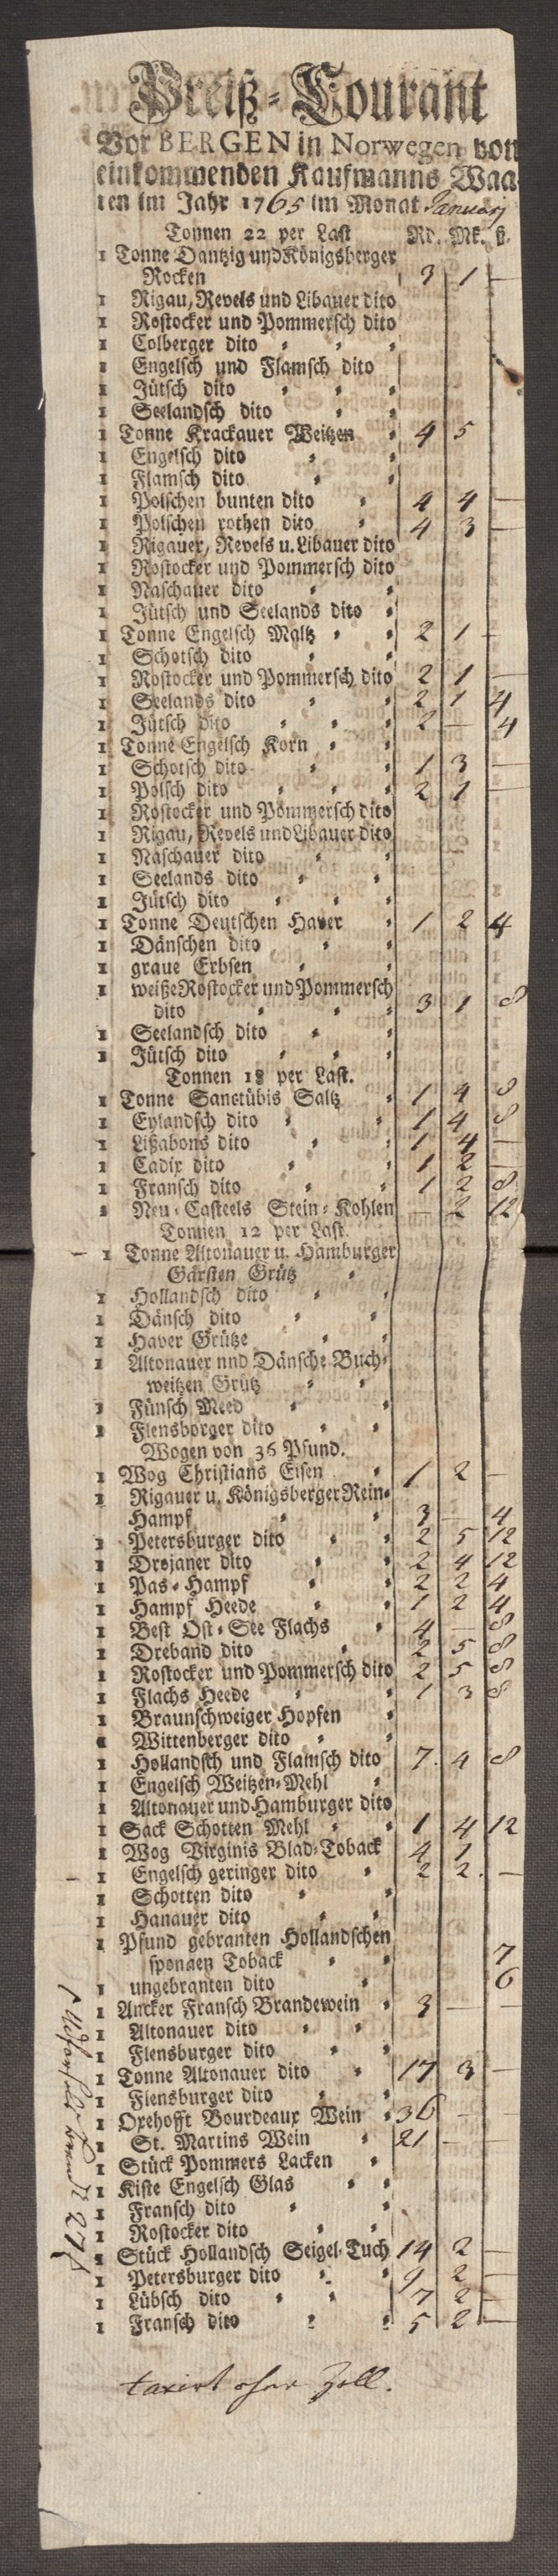 Preiß-Courant
Vor BERGEN in Norwegen von
einkommenden Kaufmanns Waa-
ren im Jahr 1765 im Monat January
Tonnen 22 per Last Rd. Mk. ß.
1 Tonne Dantzig und Königsberger
Rocken 3 1 —
1 Rigau, Revels und Libauer dito
1 Rostocker und Pommersch dito
1 Colberger dito
1 Engelsch und Flamsch dito
1 Jütsch dito
1 Seelandsch dito
1 Tonne Krackauer Weitzen 4 5
1 Engelsch dito
1 Flamsch dito
1 Polschen bunten dito 4 4 —
1 Polschen rothen dito 4 3 —
1 Rigauer, Revels u. Libauer dito
1 Rostocker und Pommersch dito
1 Naschauer dito
1 Jütsch und Seelands dito
1 Tonne Engelsch Maltz 2 1 —
1 Schotsch dito
1 Rostocker und Pommersch dito 2 1 —
1 Seelands dito 2 1 4
1 Jütsch dito 2 — 4
1 Tonne Engelsch Korn
1 Schotsch dito 1 3 —
1 Polsch dito 2 1 —
1 Rostocker und Pommersch dito
1 Rigau, Revels und Libauer dito
1 Naschauer dito
1 Seelands dito
1 Jütsch dito
1 Tonne Deutschen Haver 1 2 4
1 Dänschen dito
1 graue Erbsen
1 weiße Rostocker und Pommersch
dito 3 1 8
1 Seelandsch dito
1 Jütsch dito
Tonnen 18 per Last.
1 Tonne Sanctübis Saltz 1 4 8
1 Eylandsch dito 1 4 8
1 Lißabons dito 1 4 —
1 Cadix dito 1 2 —
1 Fransch dito 1 2 8
1 Neu-Casteels Stein-Kohlen — 2 12
Tonnen 12 per Last
1 Tonne Altonauer u. Hamburger
Gärsten Grütz
1 Hollandsch dito
1 Dänsch dito
1 Haver Grütze
1 Altonauer nnd Dänsche Buch-
weitzen Grütz
1 Fünsch Meed
1 Flensborger dito
Wogen von 36 Pfund.
1 Wog Christians Eisen 1 2 —
1 Rigauer u. Königsberger Rein-
Hampf 3 — 4
1 Petersburger dito 2 5 12
1 Drojaner dito 2 4 12
1 Pas-Hampf 2 2 4
1 Hampf Heede 1 2 4
1 Best Ost-See Flachs 4 — 8
1 Dreband dito 2 5 8
1 Rostocker und Pommersch dito 2 5 8
1 Flachs Heede 1 3 8
1 Braunschweiger Hopfen
1 Wittenberger dito
1 Hollandsch und Flamsch dito 7 4 8
1 Engelsch Weitzen-Mehl
1 Altonauer und Hamburger dito
1 Sack Schotten Mehl 1 4 12
1 Wog Virginis Blad-Toback 4 1
1 Engelsch geringer dito 2 2 —
1 Schotten dito
1 Hanauer dito
1 Pfund gebranten Hollandschen
sponaen Toback 7
1 ungebranten dito 6
1 Ancker Fransch Brandewein 3 — —
1 Altonauer dito
1 Flensburger dito
1 Tonne Altonauer dito 17 3 —
1 Flensburger dito
1 Oxehofft Bourdeaux Wein 36 — —
1 St. Martins Wein 21 — —
1 Stück Pommers Lacken
1 Kiste Engelsch Glas
1 Fransch dito
1 Rostocker dito
1 Stück Hollandsch Seigel-Tuch 14 2 —
1 Petersburger dito 9 2 —
1 Lübsch dito 7 2 —
1 Fransch dito 5 2 —
taxirt ohne Zoll.